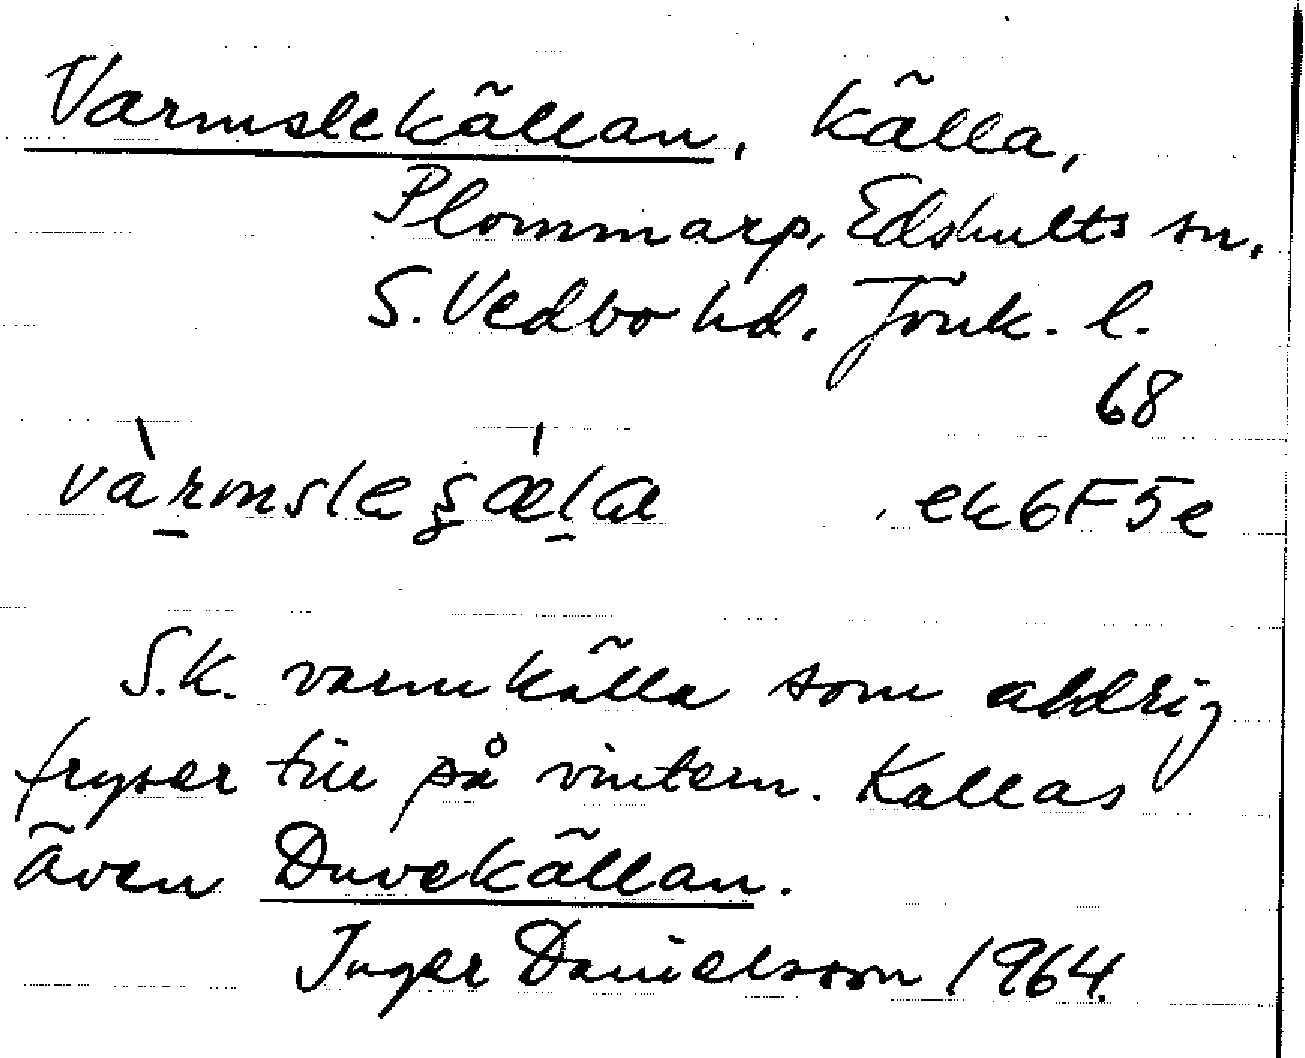 Varmslekällan, källa,
Plommarp, Edshults sn.
S. Vedbo hd. Jönk. l.
68
ek6F5e
S.k. varmkälla som aldrig
fryser till på vintern. Kallas
även Duvekällan.
Inger Danielsson 1964.